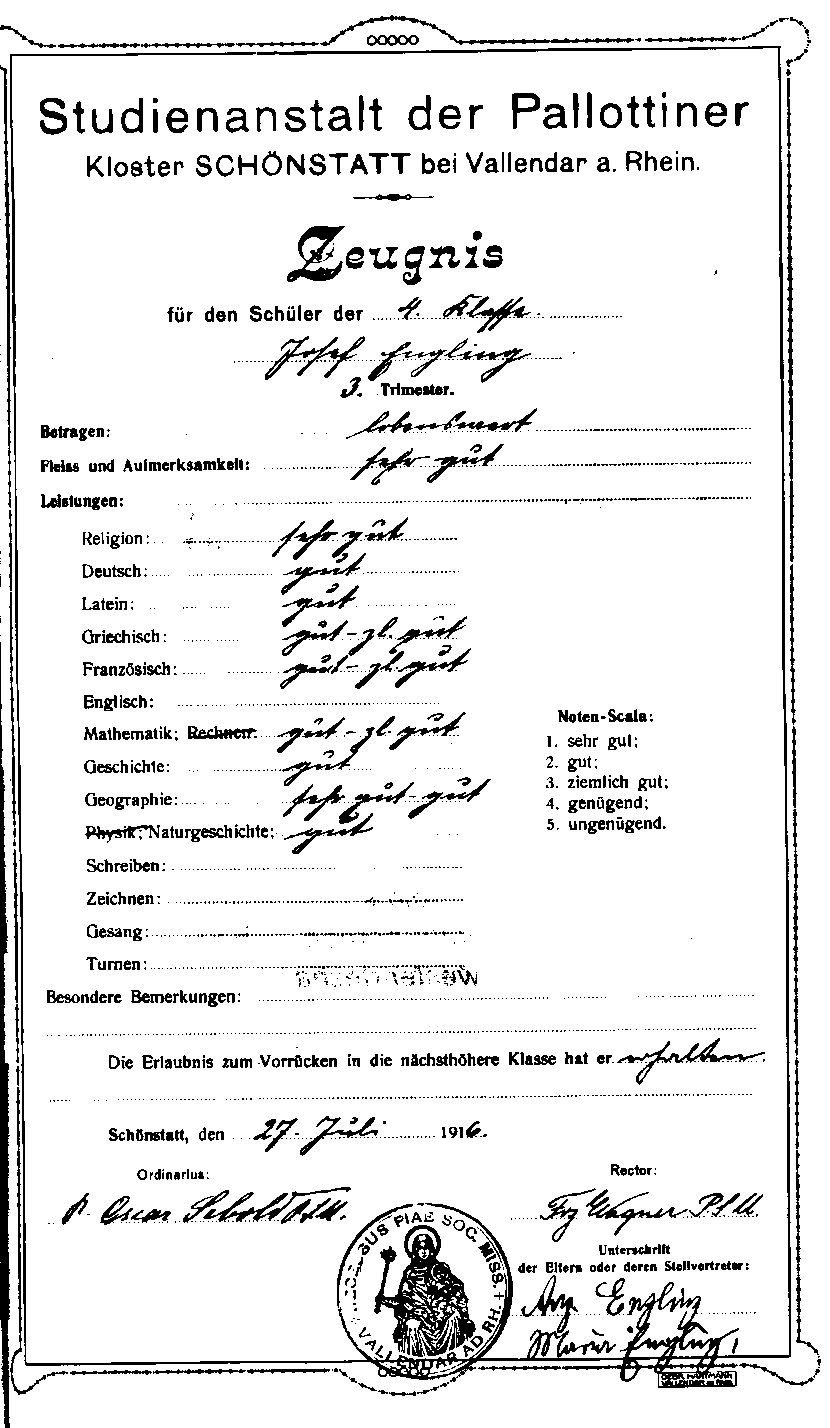 Studienanstalt der Pallottiner
Kloster SCHÖNSTATT bei Vallendar a. Rhein.
Zeugnis
für den Schüler der 4. Klasse.
Josef Engling
3. Trimester.
Betragen: lobenswert
Fleiss und Aufmerksamkeit: sehr gut
Leistungen:
Religion: sehr gut
Deutsch: gut
Latein: gut
Griechisch: gut - zl. gut
Französisch: gut - zl. gut
Englisch:
Mathematik; Rechnen: gut - zl. gut
Geschichte: gut
Geographie: sehr gut - gut
Physik; Naturgeschichte; gut
Schreiben:
Zeichnen:
Gesang:
Turnen:
Noten-Scala:
1. sehr gut;
2. gut;
3. ziemlich gut;
4. genügend;
5. ungenügend.
Besondere Bemerkungen:
Die Erlaubnis zum Vorrücken in die nächsthöhere Klasse hat er erhalten.
Schönstatt, den 27. Juli 1916.
Ordinarius:
P. Oscar Sebold P.S.M.
Rector:
Frz Wagner PSM
Unterschrift
der Eltern oder deren Stellvertreter:
Engling
Engling
PIAE SOC. MISS.
VALLENDAR AD RH.
GEBR. HARTMANN
VALLENDAR AM RHEIN